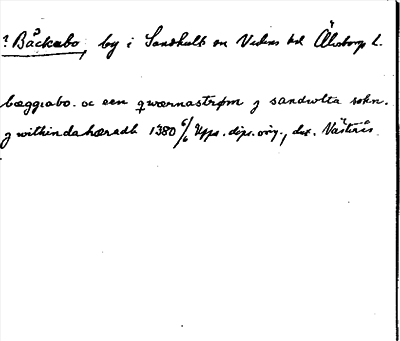 ? Bäckabo, by i Sandhults sn Vedens hd Älvsborgs l.
bæggiabo. oc een qwærnastrøm j sandwlta sokn.
j withindahæradh 1380 6/6 Upps. dipl. orig., dat. Västerås.